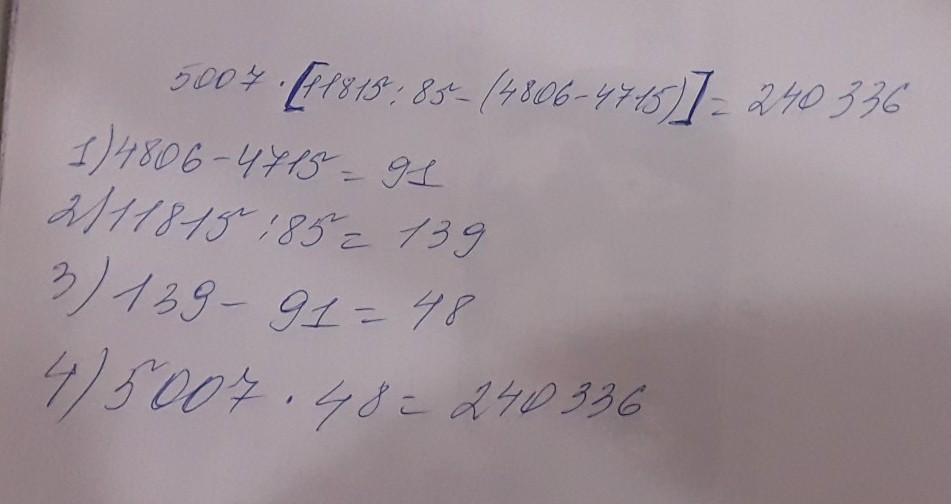 5007 · [11815 : 85 - (4806 - 4715)] = 240 336
1) 4806 - 4715 = 91
2) 11815 : 85 = 139
3) 139 - 91 = 48
4) 5007 · 48 = 240 336